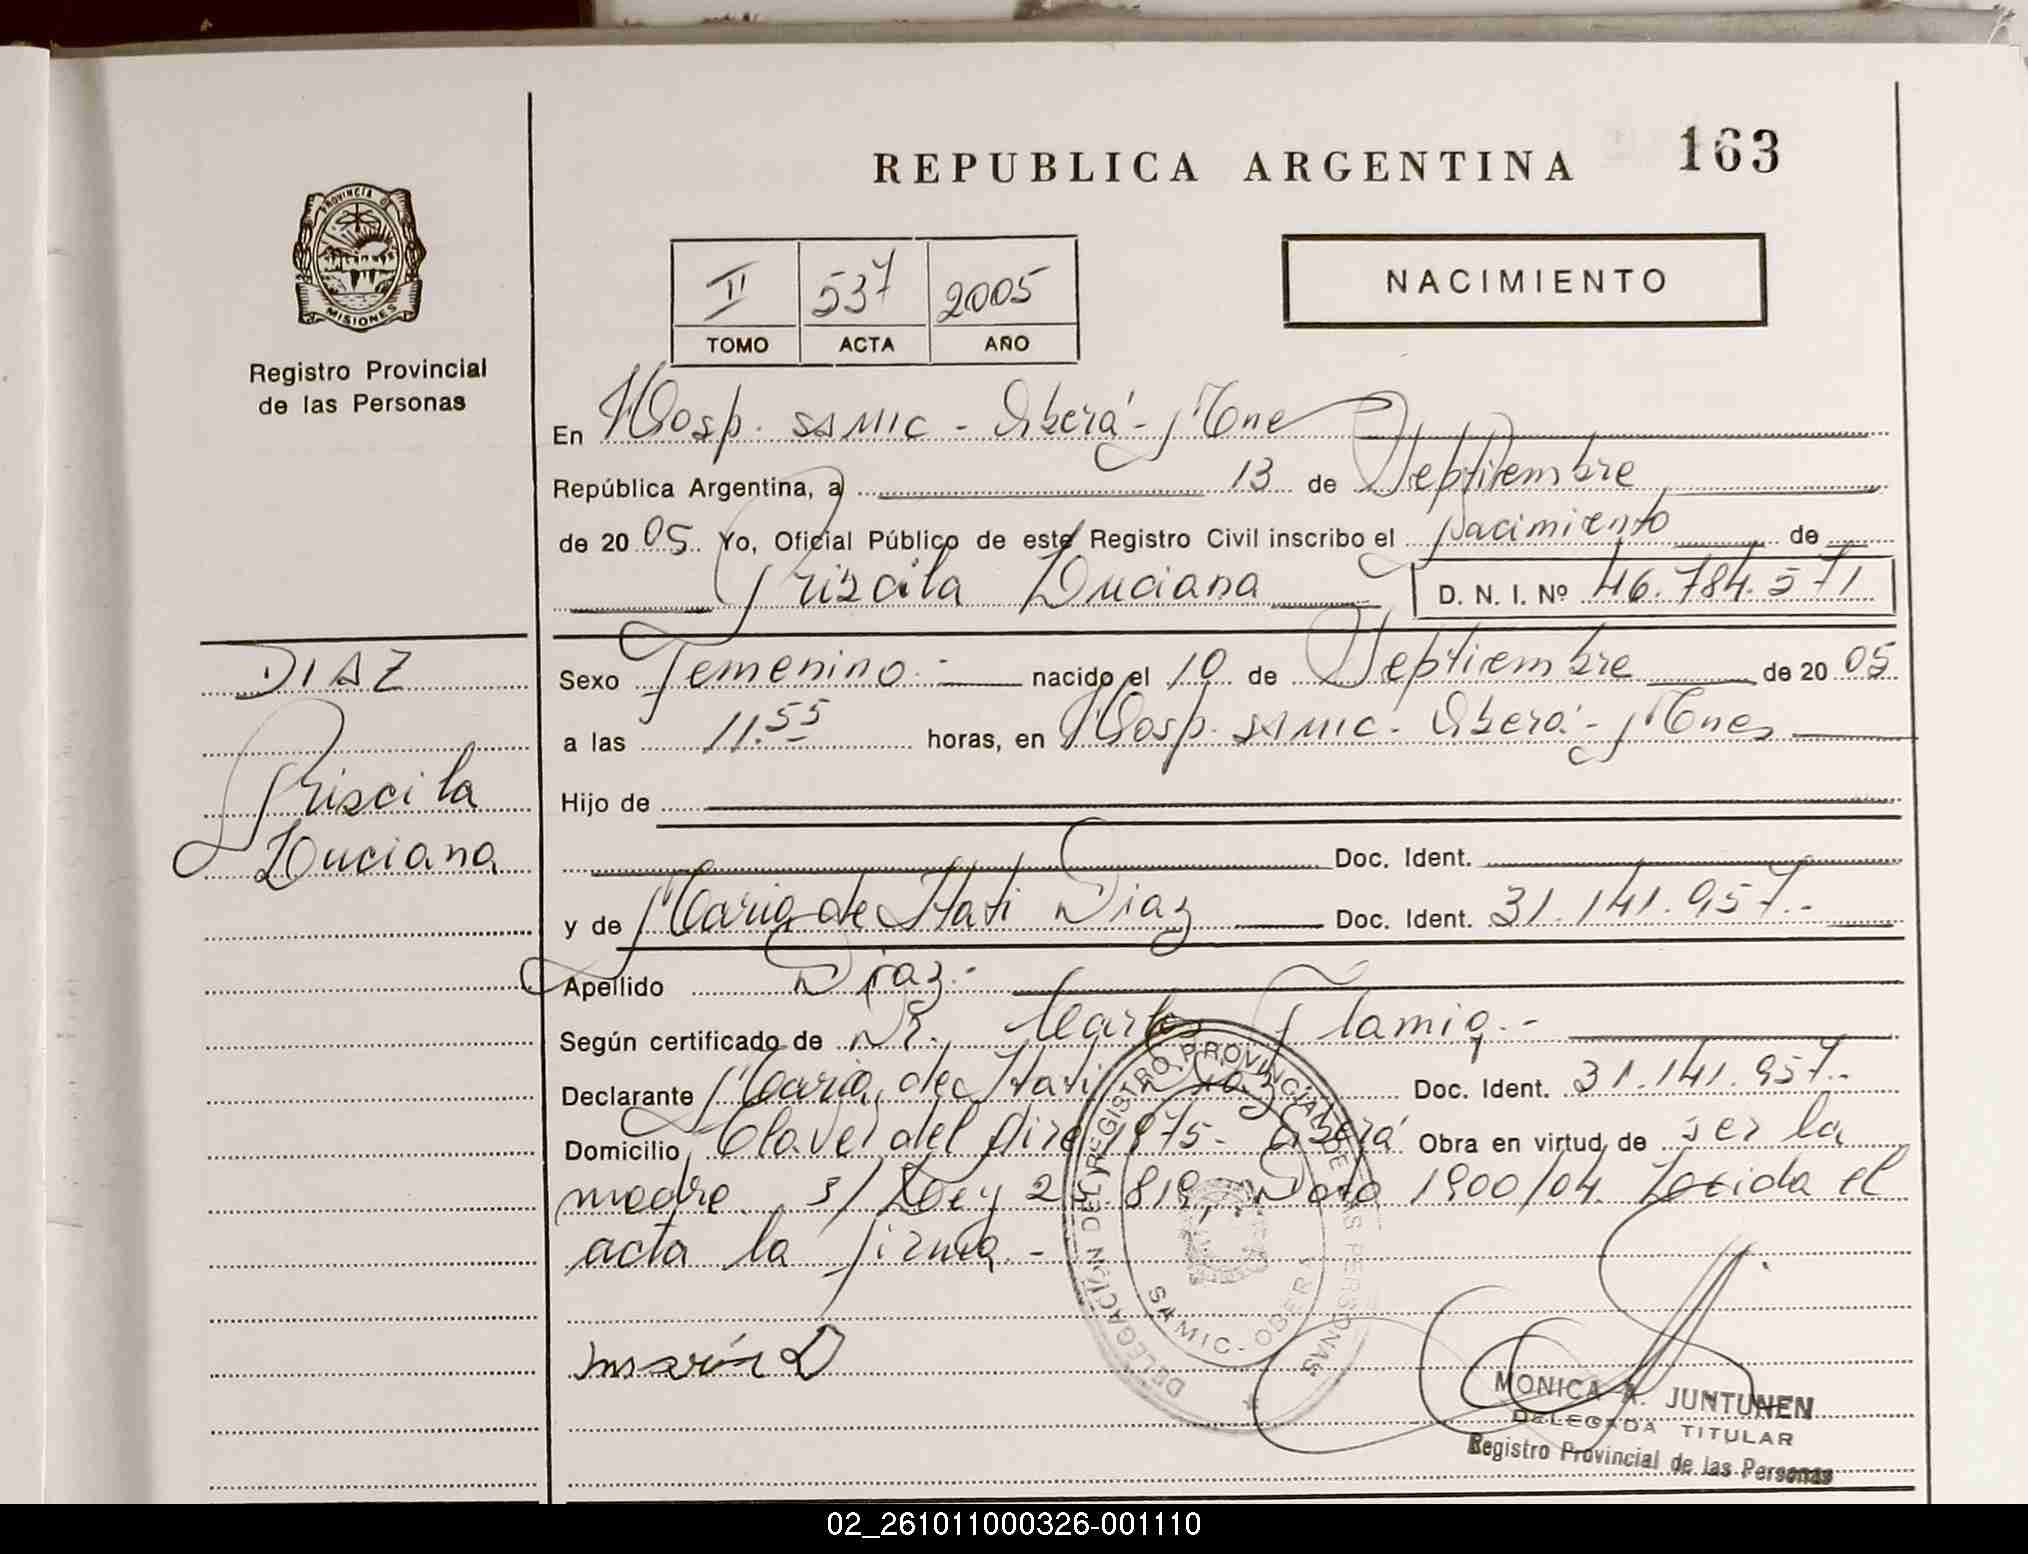 REPUBLICA ARGENTINA 163
PROVINCIA D
MISIONES
Registro Provincial
de las Personas
II 537 2005
TOMO ACTA AÑO
NACIMIENTO
En Hosp. SAMIC - Oberá - Mnes
República Argentina, a 13 de Septiembre
de 20 05 Yo, Oficial Público de este Registro Civil inscribo el nacimiento de
Priscila Luciana D. N. I. Nº 46.784.571
DIAZ
Priscila
Luciana
Sexo Femenino.- nacido el 10 de Septiembre de 20 05
a las 11.55 horas, en Hosp. SAMIC - Oberá - Mnes
Hijo de
Doc. Ident.
y de Maria de Itati Diaz Doc. Ident. 31.141.957.-
Apellido Diaz.-
Según certificado de Dr. Carlos Flamiq.-
Declarante Maria de Itati Diaz Doc. Ident. 31.141.957.-
Domicilio Clavel del Aire 1975 - Oberá Obra en virtud de ser la
madre s/ Ley 2 819, 1900/04. Leida el
acta la firma.-
María D
DELEGACIÓN DEL REGISTRO PROVINCIAL DE LAS PERSONAS
SAMIC - OBERA
MONICA A. JUNTUNEN
DELEGADA TITULAR
Registro Provincial de las Personas
02_261011000326-001110